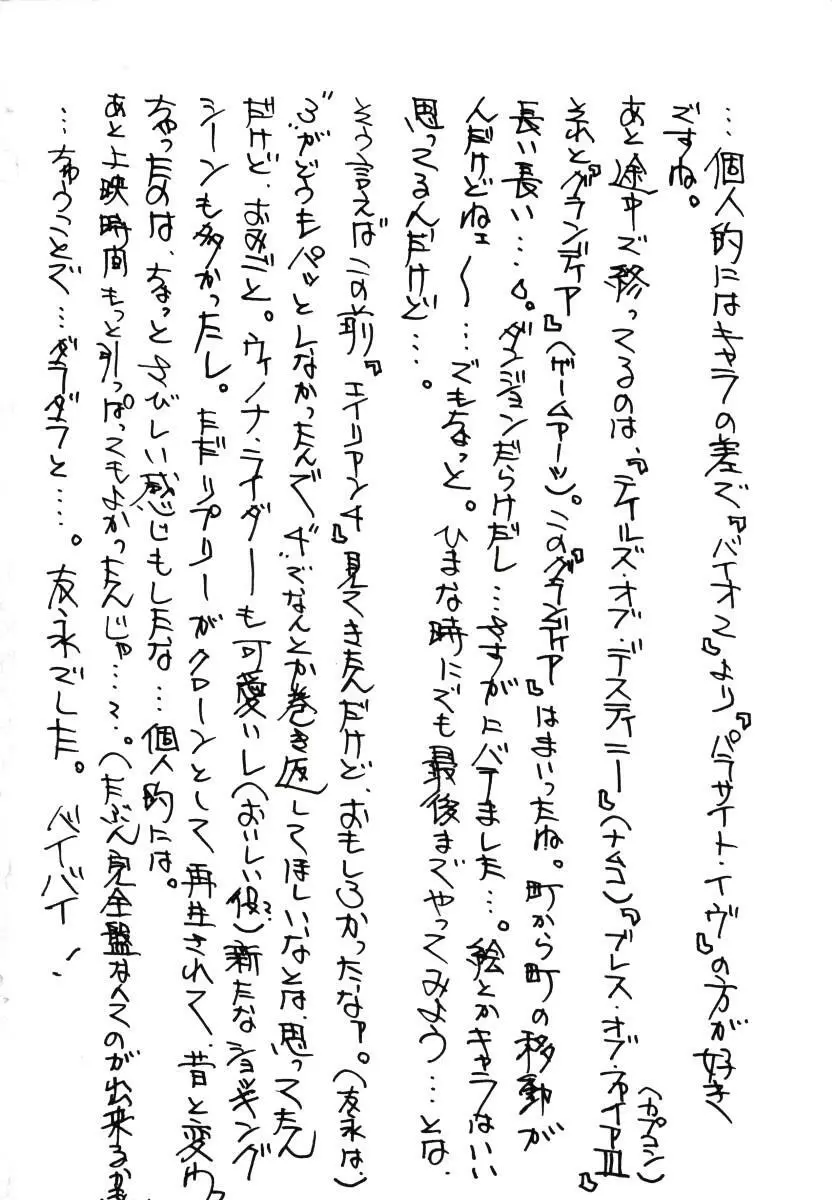 …個人的にはキャラの差で『バイオ2』より『パラサイト・イヴ』の方が好き
ですね。
あと途中で終ってるのは、『テイルズ・オブ・デスティニー』(ナムコ)『ブレス・オブ・ファイアⅢ』(カプコン)
それと『グランディア』(ゲームアーツ)。この『グランディア』はまいったね。町から町の移動が
長い長い…。ダンジョンだらけだし…さすがにバテました…。絵とかキャラないい
んだけどねェ〜…でもちっと。ひまな時にでも最後までやってみよう…とは、
思ってるんだけど…。
そう言えばこの前『エイリアン4』見てきたんだけど、おもしろかったなァ。(友永は、)
"3"がどうもパッとしなかったんで、"4"でなんとか巻き返してほしいなとは、思ってたん
だけど、おみごと。ウィノナ・ライダーも可愛いし(おいしい役?)新たなショッキング
シーンも多かったし。ただリプリーがクローンとして再生されて、昔と変わっ
ちゃったのは、ちょっとさびしい感じもしたな…個人的には。
あと上映時間もっと引っぱってもよかったんじゃ…?。(たぶん完全盤なんてのが出来るか
…ちゅうことで…ダラダラと…。友永でした。バイバイ!